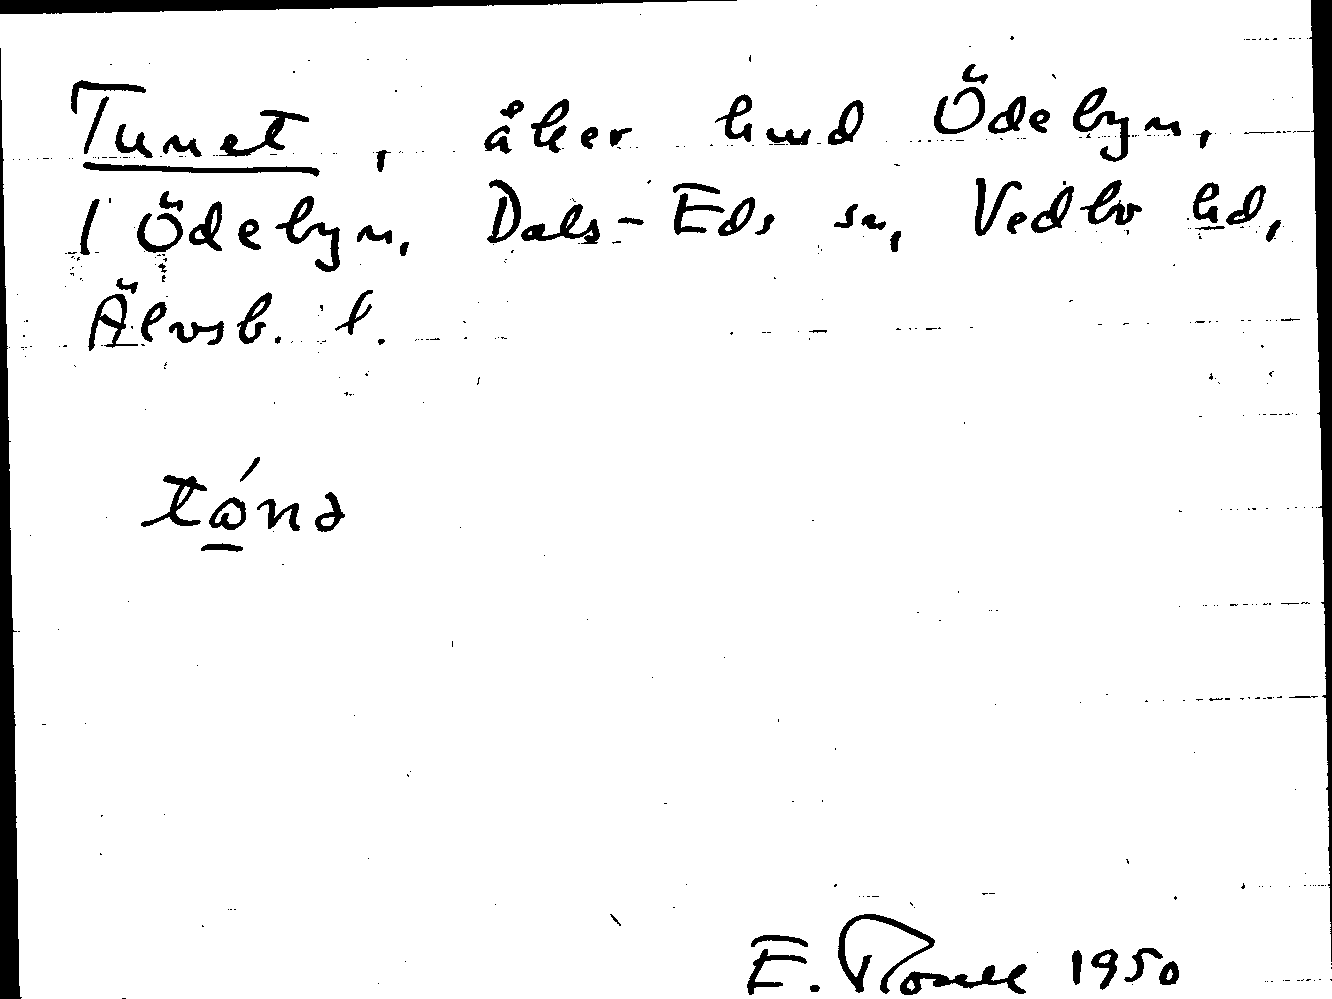 Tunet, åker hmd Ödebyn,
1 Ödebyn, Dals-Eds sn, Vedbo hd,
Älvsb. l.
tǿnə
E. 1950